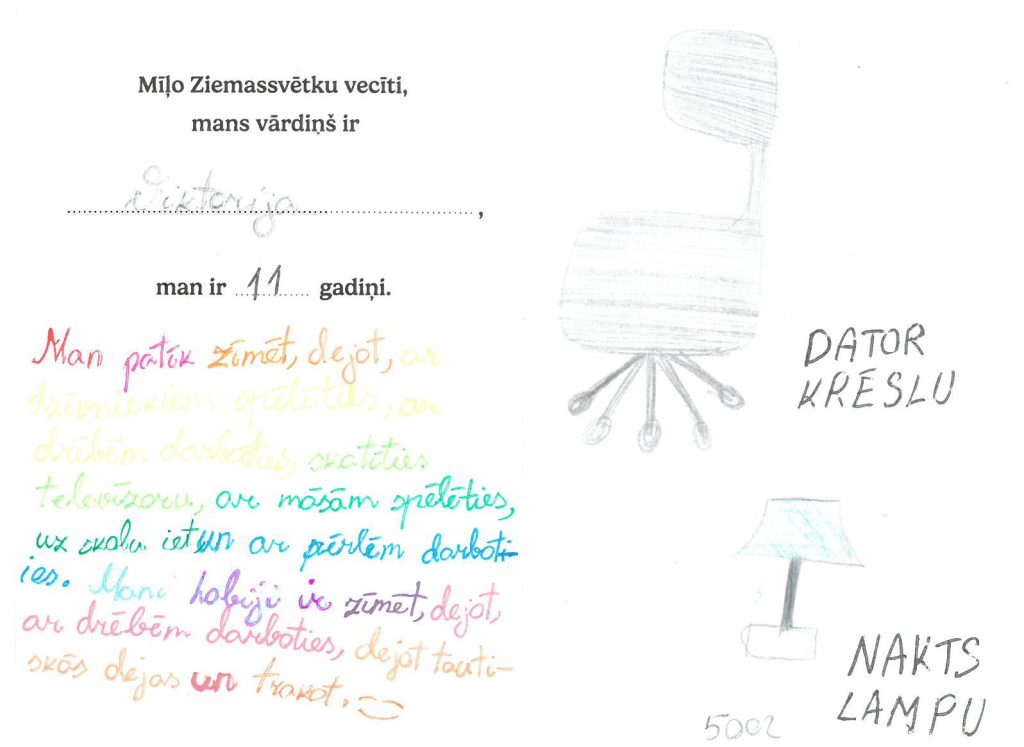 Mīļo Ziemassvētku vecīti,
mans vārdiņš ir
Viktorija,
man ir 11 gadiņi.
Man patīk zīmēt, dejot, ar
dzīvniekiem spēlēties, ar
drēbēm darboties, skatīties
televīzoru, ar māsām spēlēties,
uz skolu iet un ar pērlēm darboti-
ies. Mani hobiji ir zīmēt, dejot,
ar drēbēm darboties, dejot tauti-
skās dejas un trakot.
DATOR
KRĒSLU
NAKTS
LAMPU